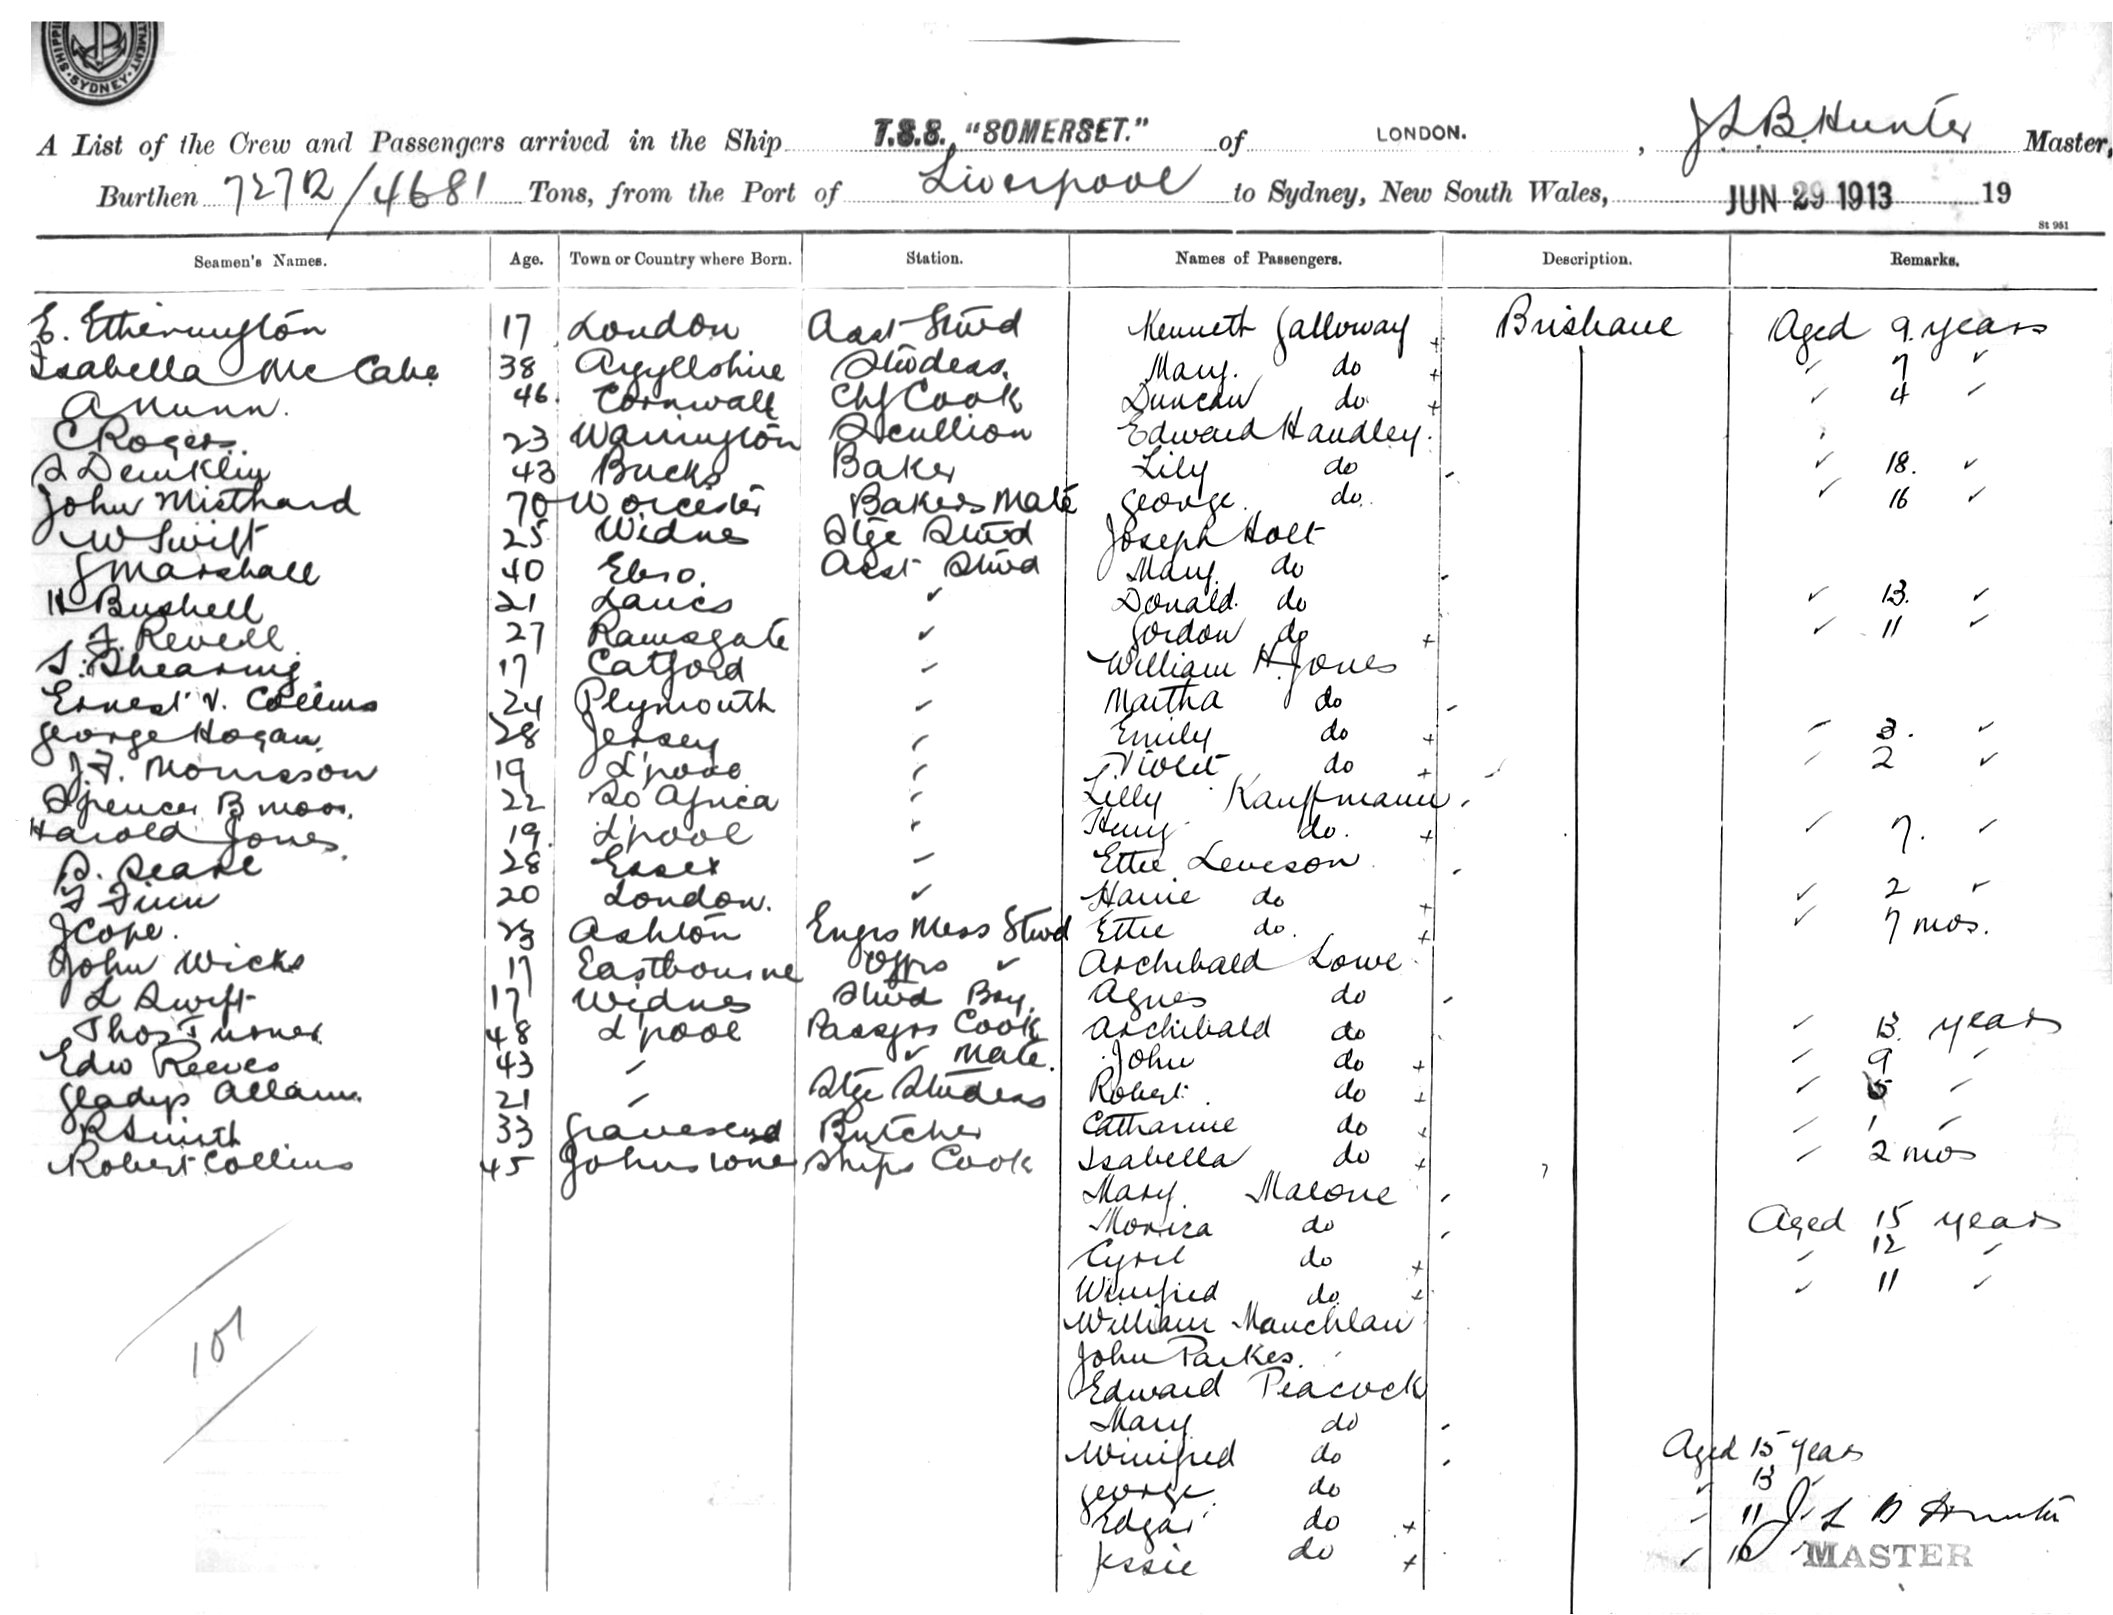 SHIPPI TMENT. SYDNEY.
A List of the Crew and Passengers arrived in the Ship T.S.S. "SOMERSET." of LONDON. , J L B Hunter Master,
Burthen 7272/4681 Tons, from the Port of Liverpool to Sydney, New South Wales, JUN 29 1913 19
St 951
Seamen's Names. Age. Town or Country where Born. Station. Names of Passengers. Description. Remarks.
E. Etherington 17 London Asst Stwd Kenneth Galloway + Brisbane Aged 9 years
Isabella McCabe 38 Argyllshire Stwdess. Mary. do + ✓ 7 ✓
A Nunn. 46 Cornwall Chf Cook Duncan do + ✓ 4 ✓
C Rogers. 23 Warrington Scullion Edward Handley.
43 Bucks Baker Lily do ✓ 18. ✓
John Misthard 70 Worcester Bakers Mate George. do. ✓ 16 ✓
W Swift 25 Widnes Stge Stwd Joseph Holt
J Marshall 40 Ebro. Asst Stwd Mary do
H Bushell 21 Lancs ✓ Donald. do ✓ 13. ✓
F. Revell. 27 Ramsgate ✓ Gordon do + ✓ 11 ✓
S. Shearing 17 Catford ✓ William H. Jones
Ernest V. Collins 24 Plymouth ✓ Martha do
George Hogan. 28 Jersey ✓ Emily do + ✓ 3. ✓
J. F. Morrisson 19 L'pool ✓ Violet do + ✓ 2 ✓
Spencer B Moor. 22 So Africa ✓ Lilly Kauffmann
Harold Jones. 19. L'pool ✓ Henry do. + ✓ 7. ✓
S. Searl 28 Essex ✓ Ettie Leveson
F Finn 20 London. ✓ Hanie do + ✓ 2 ✓
J Cope. 23 Ashton Engrs Mess Stwd Ettie do. + ✓ 7 mos.
John Wicks 17 Eastbourne Offrs ✓ Archibald Lowe
L Swift 17 Widnes Stwd Boy. Agnes do
Thos Turner 48 L'pool Passgrs Cook Archibald do ✓ 13. years
Edw Reeves 43 ✓ ✓ Mate. John do + ✓ 9 ✓
Gladys Allam. 21 ✓ Stge Stwdess Robert. do + ✓ 5 ✓
R Smith 33 Gravesend Butcher Catharine do + ✓ 1 ✓
Robert Collins 45 Johnstone Ships Cook Isabella do + ✓ 2 mos
Mary Malone
Monica do Aged 15 years
Cyril do + ✓ 12 ✓
Winifred do + ✓ 11 ✓
William Mauchlan
John Parkes.
107
Edward Peacock
Mary do
Winifred do Aged 15 years
George. do ✓ 13 ✓
Edgar do + ✓ 11 J L B Hunter
Jessie do + ✓ 10 MASTER